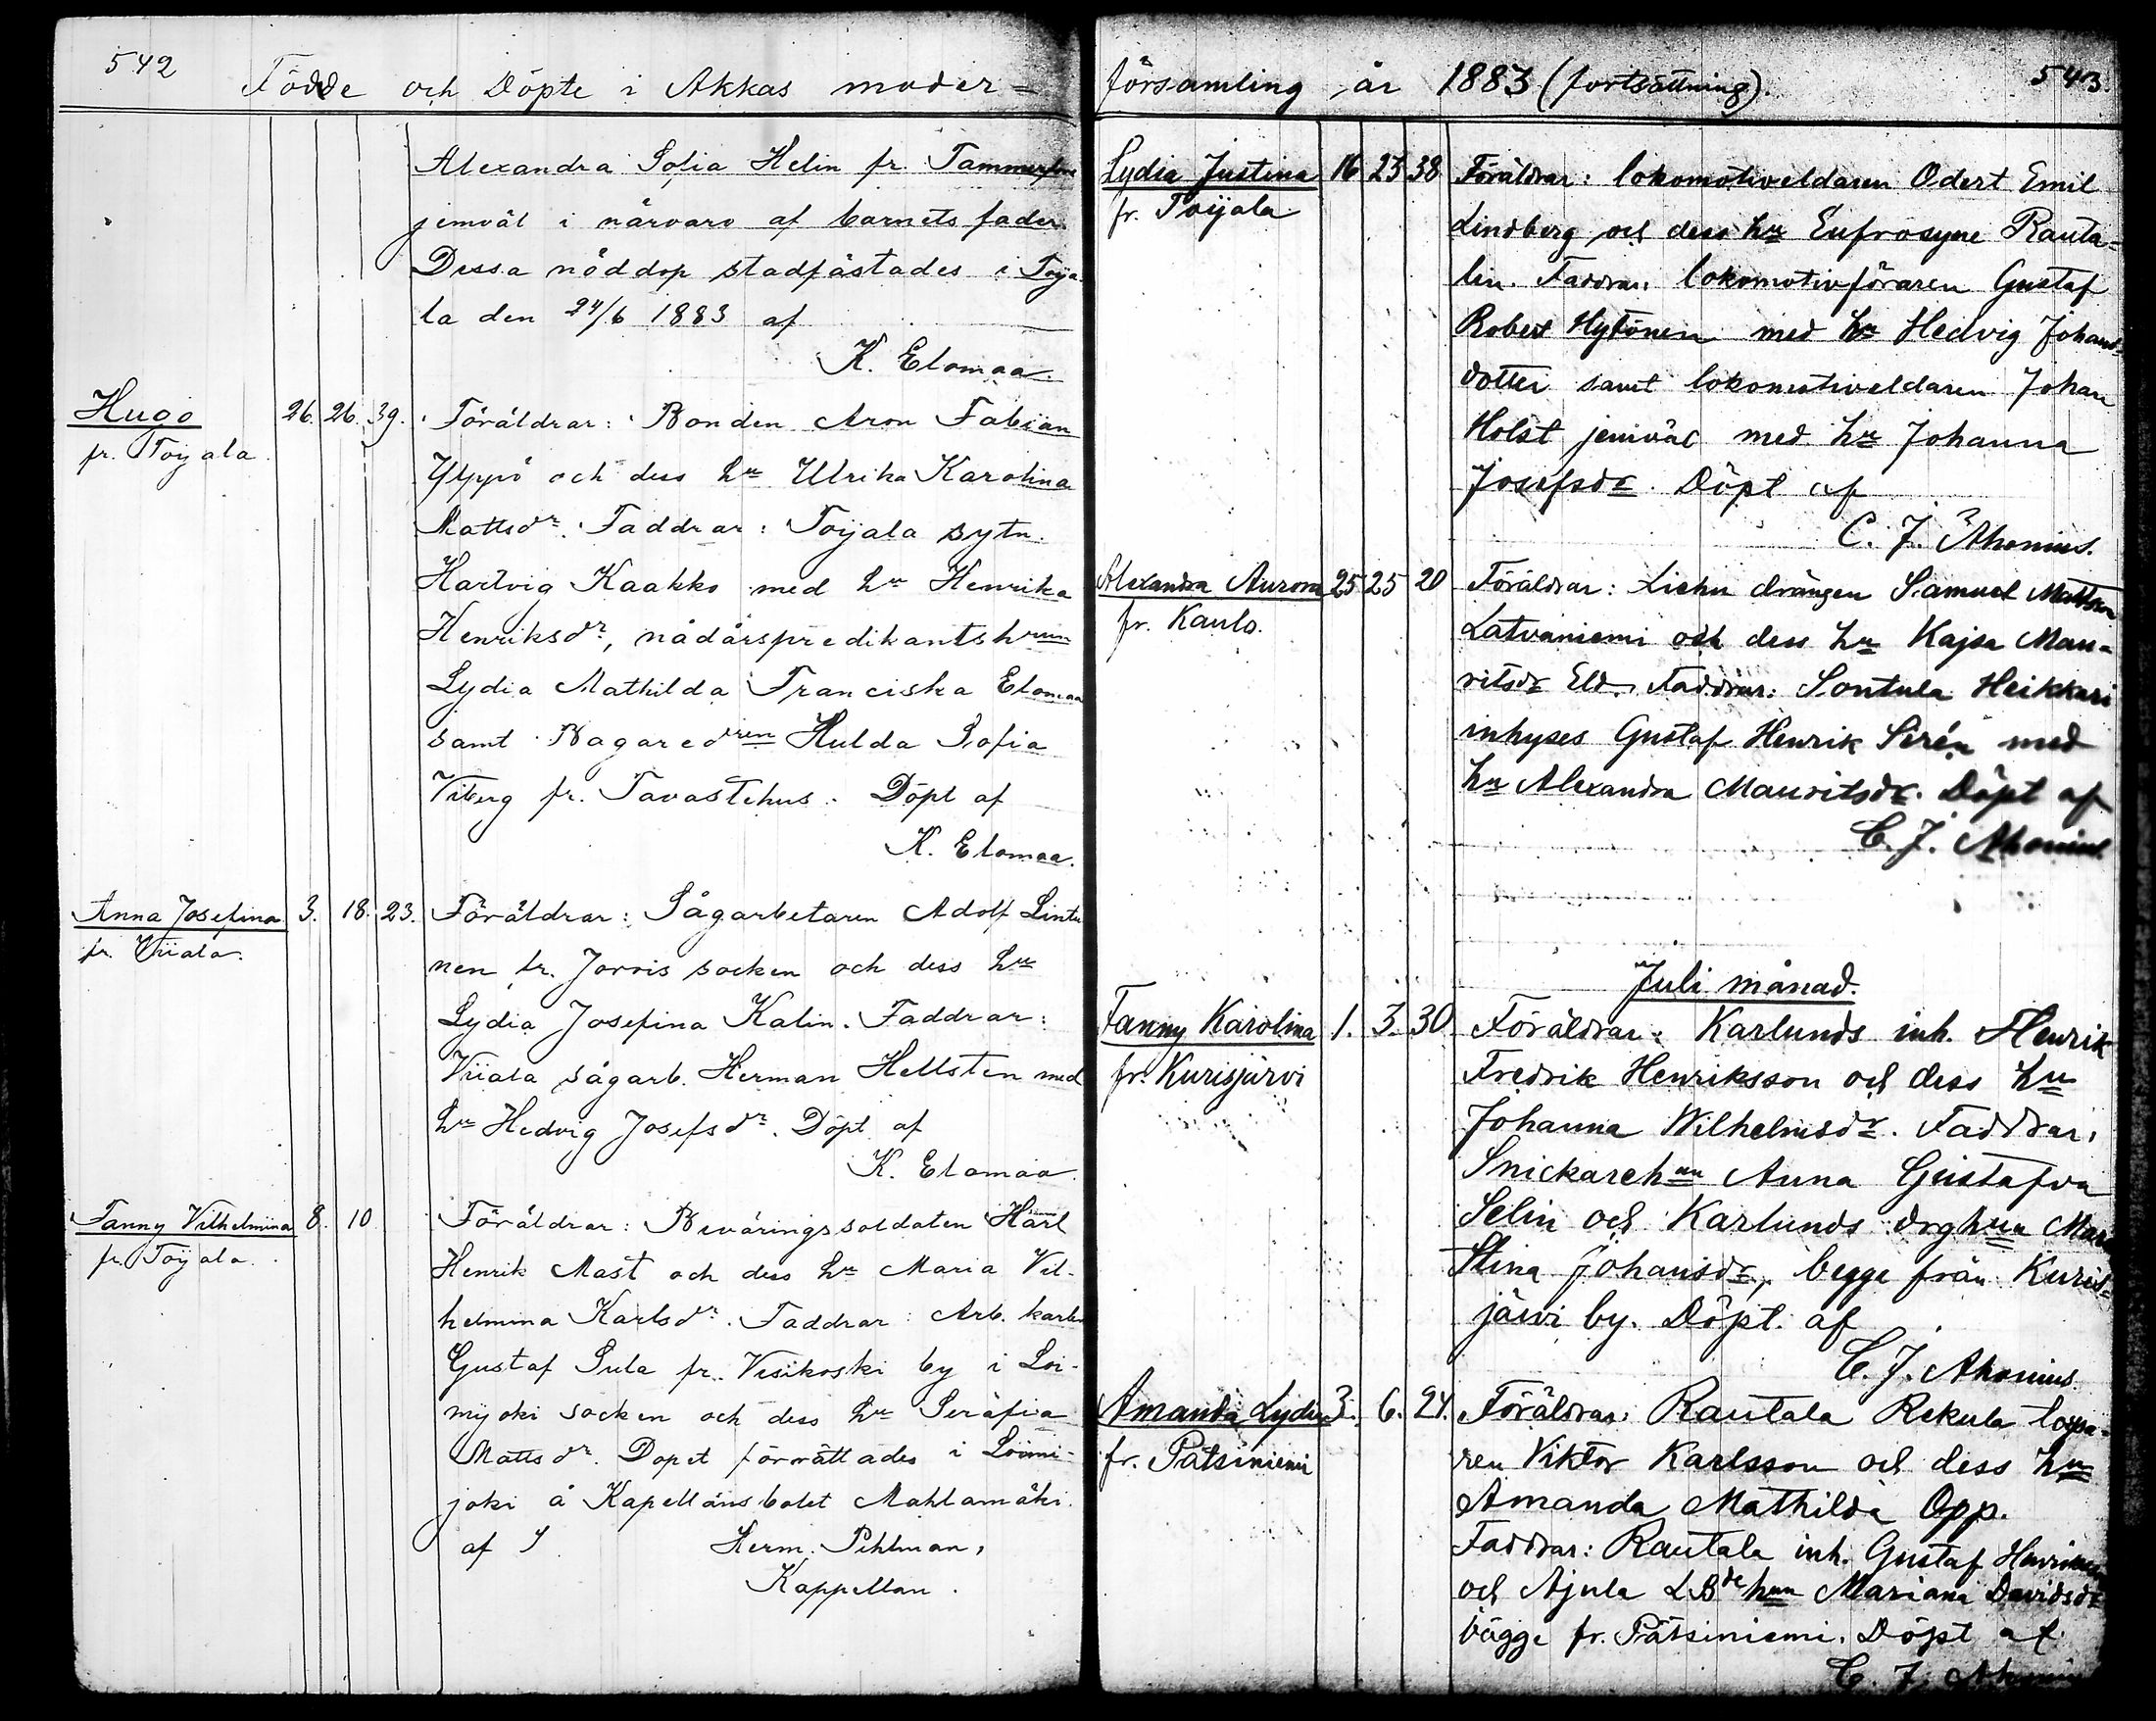 542
Födde och Döpte i Akkas moder=
Alexandra Sofia Helin fr. Tammerfors
jemväl i närvaro af barnets fader.
Dessa nöddop stadfästades i Toija-
la den 24/6 1883 af
K. Elomaa.
Hugo 26. 26. 39. Föräldrar: Bonden Aron Fabian
fr. Toijala.
Yppö och dess hu Ulrika Karolina
Mattsdr. Faddrar: Toijala bytn.
Hartvig Kaakko med hu Henrika
Henriksdr, nådårspredikantshrun
Lydia Mathilda Franciska Elomaa
samt Bagaredren Hulda Sofia
Viberg fr. Tavastehus. Döpt af
K. Elomaa.
Anna Josefina 3. 18. 23. Föräldrar: Sågarbetaren Adolf Lintu
fr. Viiala.
nen fr. Jorris socken och dess hu
Lydia Josefina Kalin. Faddrar:
Viiala sågarb. Herman Hellsten med
hu Hedvig Josefsdr. Döpt af
K. Elomaa.
Fanny Vilhelmina 8. 10. Föräldrar: Beväringssoldaten Karl
fr. Toijala.
Henrik Mast och dess hu Maria Vil-
helmina Karlsdr. Faddrar: Arb. karlen
Gustaf Sula fr. Vesikoski by i Loi-
mijoki socken och dess hu Serafia
Mattsdr. Dopet förrättades i Loimi-
joki å Kapellansbolet Mahlamäki.
af Herm. Pihlman,
Kappellan.
församling år 1883 (fortsättning). 543.
Lydia Justina 16 23 38 Föräldrar: lokomotiveldaren Odert Emil
fr. Toijala
Lindberg och dess hu Eufrosyne Rauta-
lin. Faddrar: lokomotivföraren Gustaf
Robert Hytönen med hu Hedvig Johans-
dotter samt lokomotiveldaren Johan
Holst jemväl med hu Johanna
Josefsdr. Döpt af
C. J. Ahonius.
Alexandra Aurora 25 25 20 Föräldrar: drängen Samuel Mattson
fr. Kaulo.
Latvaniemi och dess hu Kajsa Mau-
ritsdr Eld. Faddrar: Sontula Heikkari
inhyses Gustaf Henrik Sirén med
hu Alexandra Mauritsdr. Döpt af
C. J. Ahonius.
Juli månad.
Fanny Karolina 1. 3. 30 Föräldrar: Karlunds inh. Henrik
fr. Kurisjärvi
Fredrik Henriksson och dess hu
Johanna Wilhelmsdr. Faddrar:
Snickarehun Anna Gustafva
Selin och Karlunds drghun Maria
Stina Johansdr, begge från Kuris-
järvi by. Döpt af
C. J. Ahonius.
Amanda Lydia 3. 6. 24. Föräldrar: Rautala Rekula torpa-
fr. Pätsiniemi
ren Viktor Karlsson och dess hu
Amanda Mathilda Opp.
Faddrar: Rautala inh. Gustaf Henriksson
och Ajula LBde hun Mariana Davidsdr
bägge fr. Pätsiniemi. Döpt af
C. J. Ahonius